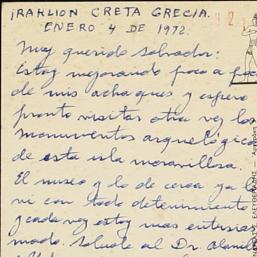 IRAKLION CRETA GRECIA.
ENERO 4 DE 1972.
Muy querido Salvador:
Estoy mejorando poco a poco
de mis achaques y espero
pronto visitar otra vez los
monumentos arqueológicos
de esta isla maravillosa.
El museo y lo de cerca ya lo
vi con todo detenimiento
y cada vez estoy mas entusias
mado. Salude al Dr.